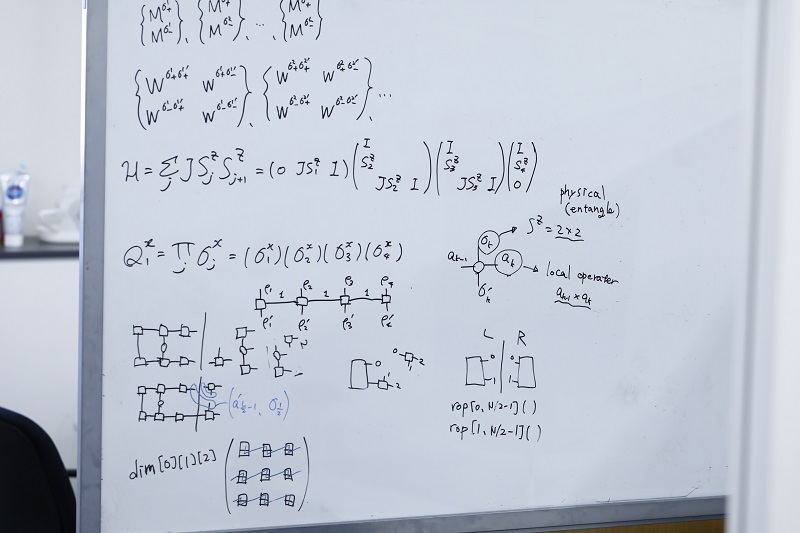 { M^σ¹₊ M^σ¹₋ }, { M^σ²₊ M^σ²₋ }, ... { M^σᴸ₊ M^σᴸ₋ }
{ W^σ¹₊σ¹'₊ W^σ¹₊σ¹'₋ }, { W^σ²₊σ²'₊ W^σ²₊σ²'₋ }
{ W^σ¹₋σ¹'₊ W^σ¹₋σ¹'₋ }, { W^σ²₋σ²'₊ W^σ²₋σ²'₋ }, ...
H = Σ_j J S_j^z S_{j+1}^z = (0 JS₁^z I) ( I S₂^z JS₂^z I ) ( I S₃^z JS₃^z I ) ( I S₄^z 0 )
physical
(entangle)
S^z = 2×2
σ_k
a_{k-1} a_k
σ'_k
local operater
a_{k-1} × a_k
Q₁^x = Π_j σ_j^x = (σ₁^x)(σ₂^x)(σ₃^x)(σ₄^x)
ρ₁ ρ₂ ρ₃ ρ₄
1 1 1
ρ₁' ρ₂' ρ₃' ρ₄'
0 1 2
0 2
L R
0 0
1 1
rop[0, N/2-1]( )
rop[1, N/2-1]( )
(a'_{L/2-1}, σ_{L/2})
dim[0][1][2]